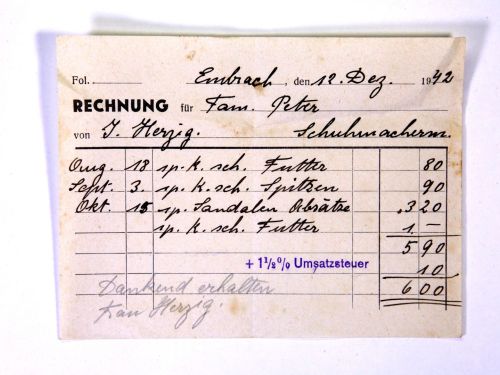 Fol. Embrach, den 12. Dez. 1942
RECHNUNG für Fam. Peter
von J. Herzig. Schuhmacherm.
Aug. 18 sp. K. sch. Futter 80
Sept. 3. sp. K. sch. Spitzen 90
Okt. 15 sp. Sandalen Absätze 3.20
sp. K. sch. Futter 1 —
5 90
+ 1½% Umsatzsteuer 10
6 00
Dankend erhalten
Frau Herzig.